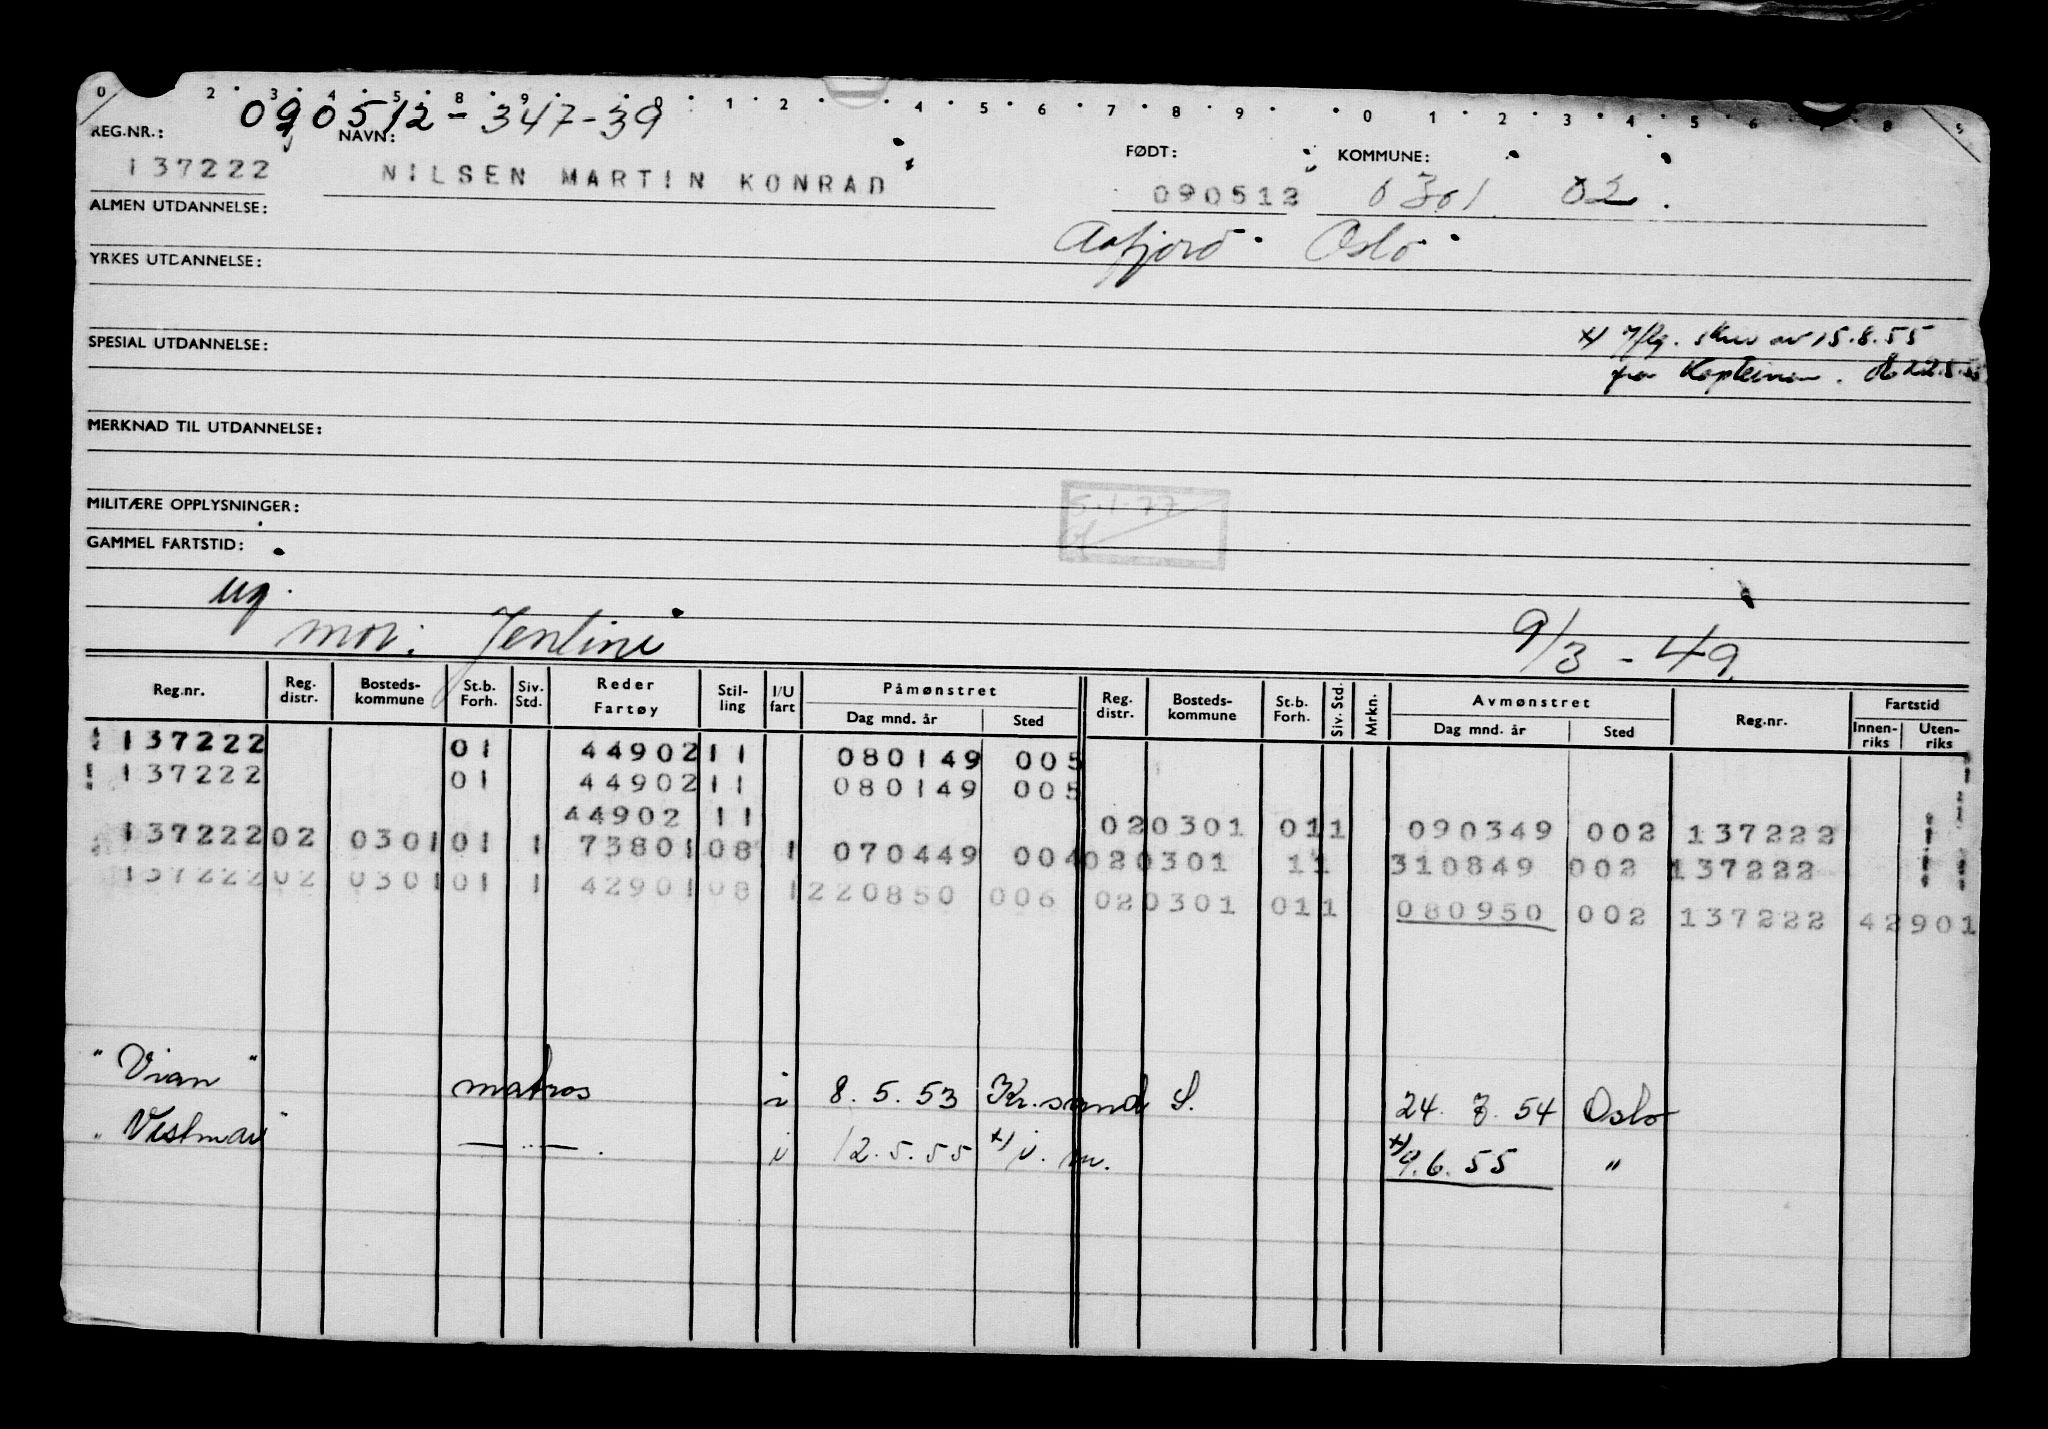 0 2 3 4 5 8 9 0 1 2 4 5 6 7 8 9 0 1 2 3 4 5 6 7 8 9
090512-347-39
REG.NR.: NAVN: FØDT: KOMMUNE:
137222 NILSEN MARTIN KONRAD 090512 0301 02.
ALMEN UTDANNELSE:
Aafjord Oslo
YRKES UTDANNELSE:
x) Iflg. skriv av 15.8.55
SPESIAL UTDANNELSE:
fra Kapteinen. 22.8.55
MERKNAD TIL UTDANNELSE:
5.1.77
MILITÆRE OPPLYSNINGER:
GAMMEL FARTSTID:
ug.
mor: Jentine 9/3-49.
Reg.nr. Reg. distr. Bosteds-kommune St.b. Forh. Siv. Std. Reder Fartøy Stil-ling I/U fart Påmønstret Dag mnd. år Sted Reg. distr. Bosteds-kommune St.b. Forh. Siv. Std. Mrkn. Avmønstret Dag mnd. år Sted Reg.nr. Fartstid Innen-riks Uten-riks
137222 01 44902 11 080149 005
137222 01 44902 11 080149 005
44902 11 02 0301 01 1 090349 002 137222
137222 02 0301 01 1 73801 08 1 070449 004 02 0301 1 1 310849 002 137222
137222 02 0301 01 1 42901 08 1 220850 006 02 0301 01 1 080950 002 137222 42901
"Vian" matros i 8.5.53 Kr.sand S. 24.3.54 Oslo
"Vestmar" —"— . i 12.5.55 x) i.m. x) 9.6.55 "